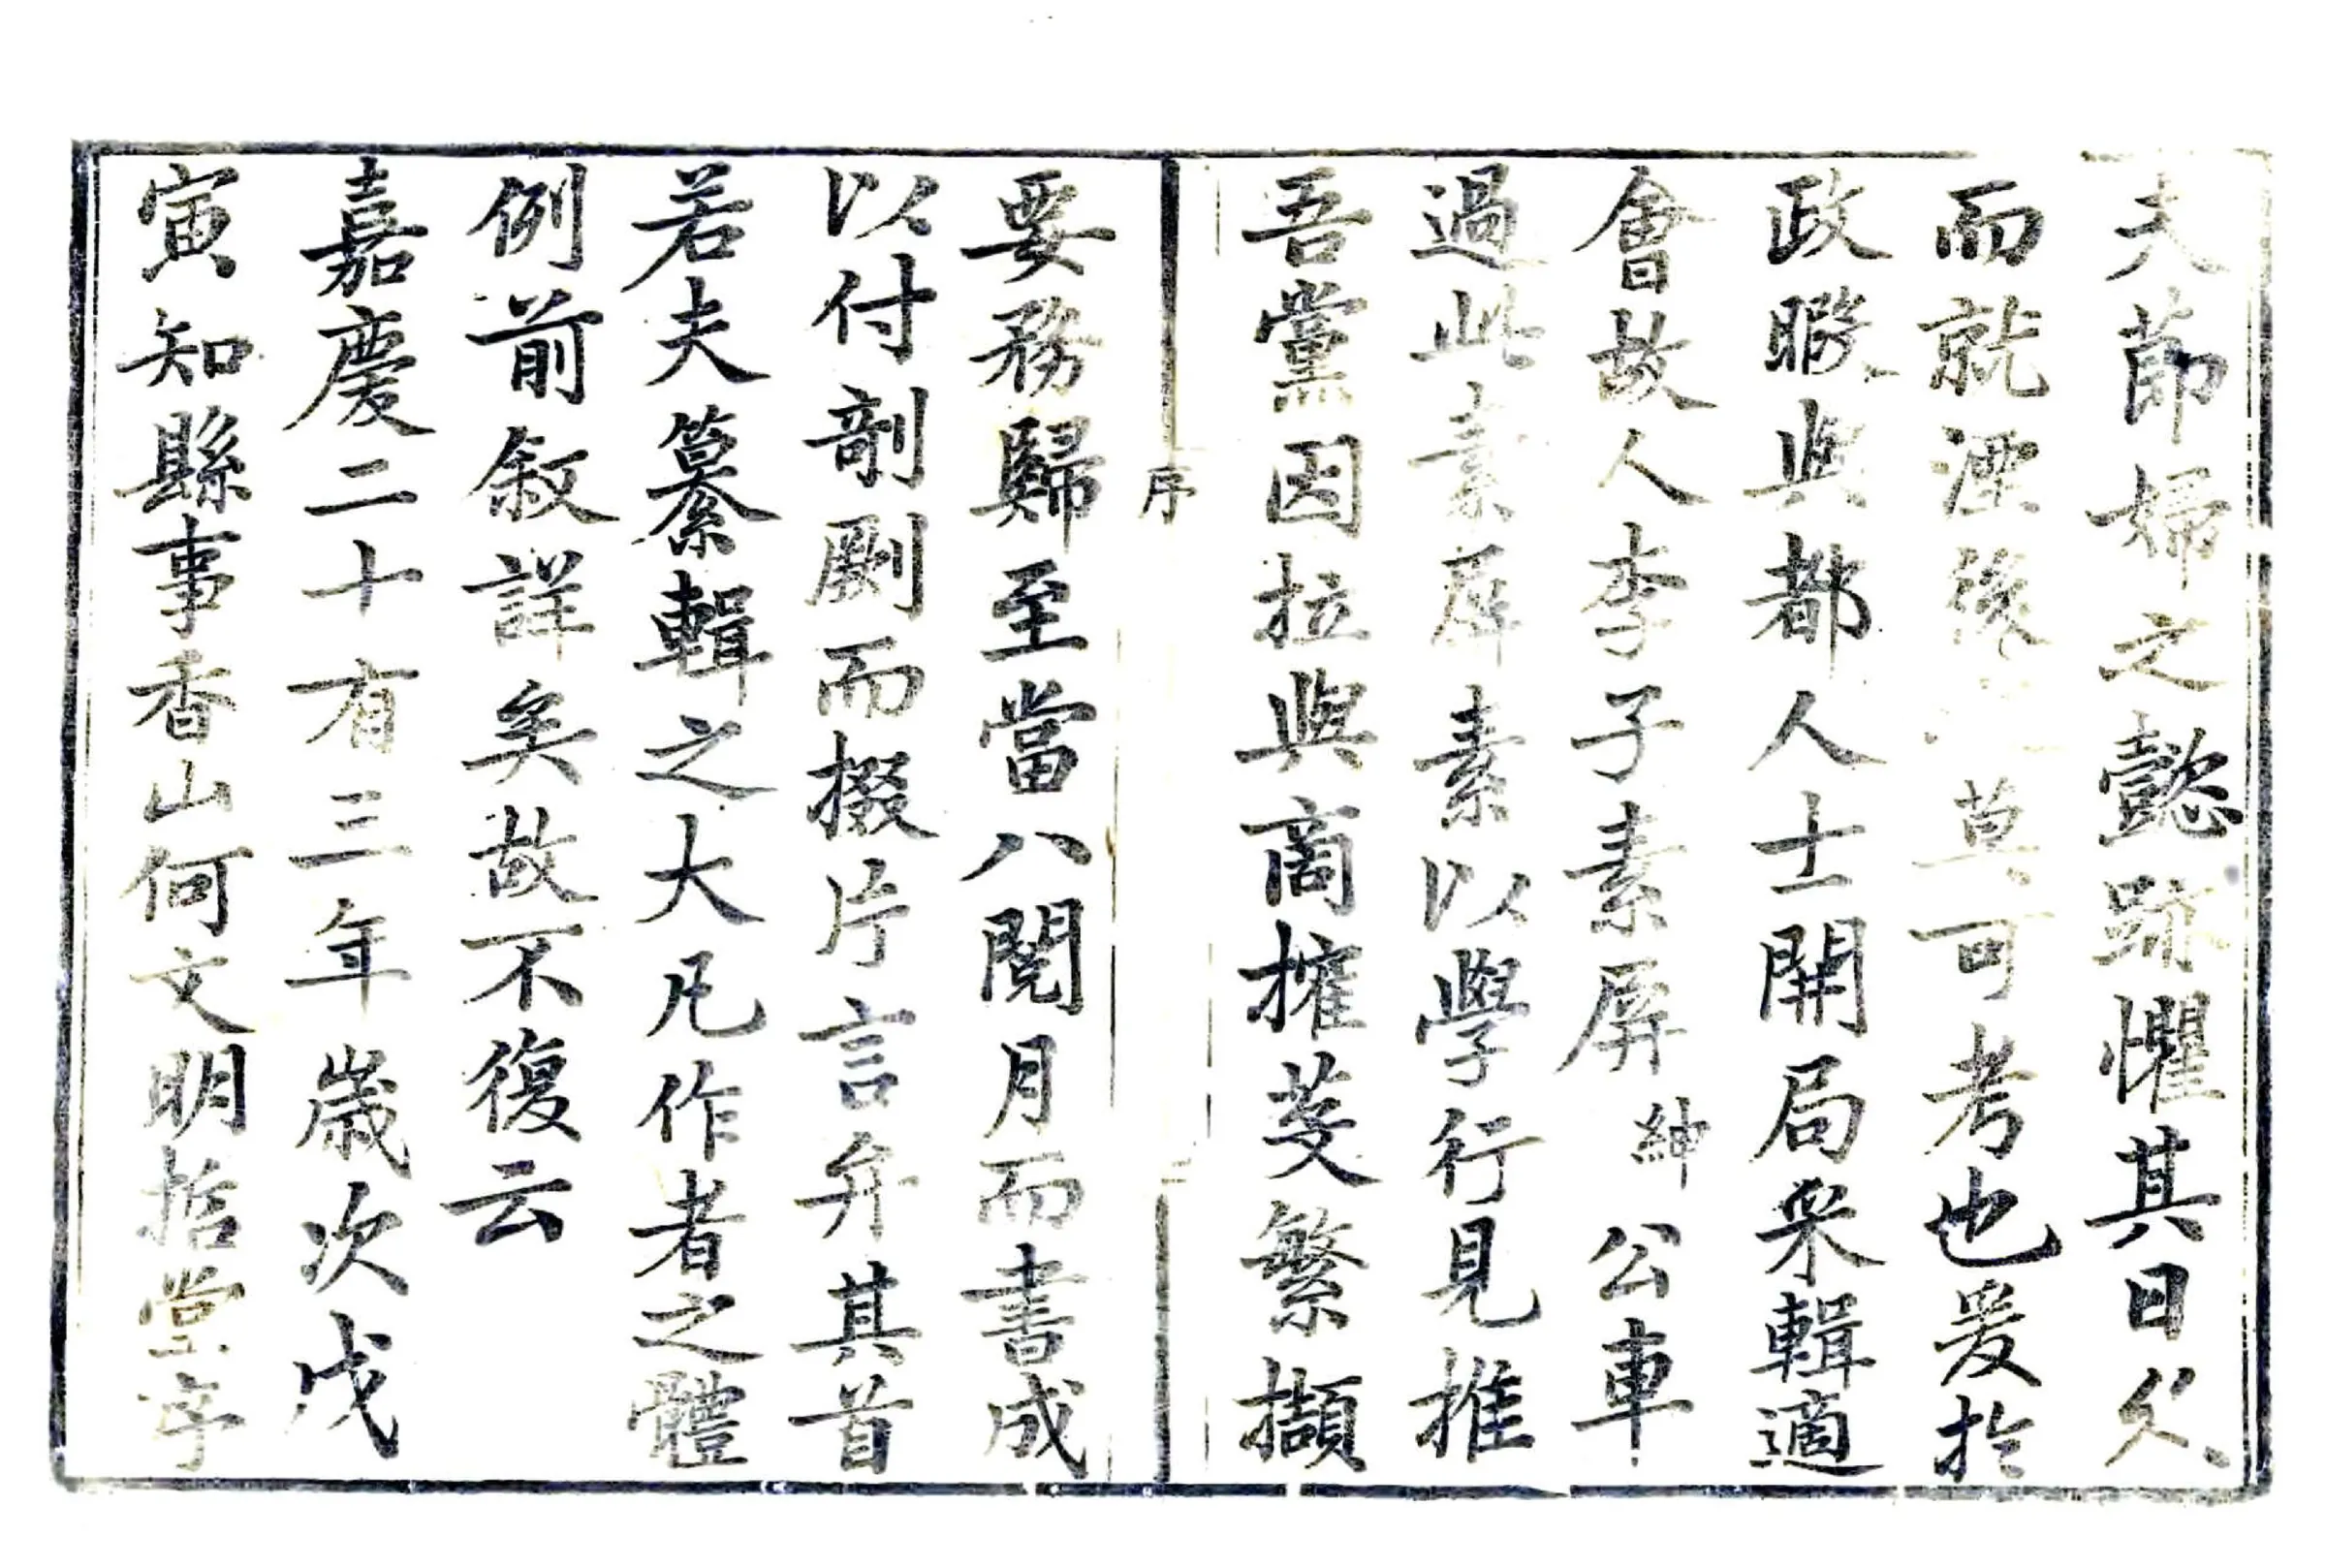 夫節婦之懿跡懼其日久
而就湮後莫可考也爰於
政暇與都人士開局采輯適
會故人李子素屏紳公車
過此素屏素以學行見推
吾黨因拉與商搉芟繁擷
要務歸至當八閱月而書成
以付剞劂而掇片言弁其首
若夫纂輯之大凡作者之體
例前敘詳矣故不復云
嘉慶二十有三年歲次戊
寅知縣事香山何文明哲堂序
序